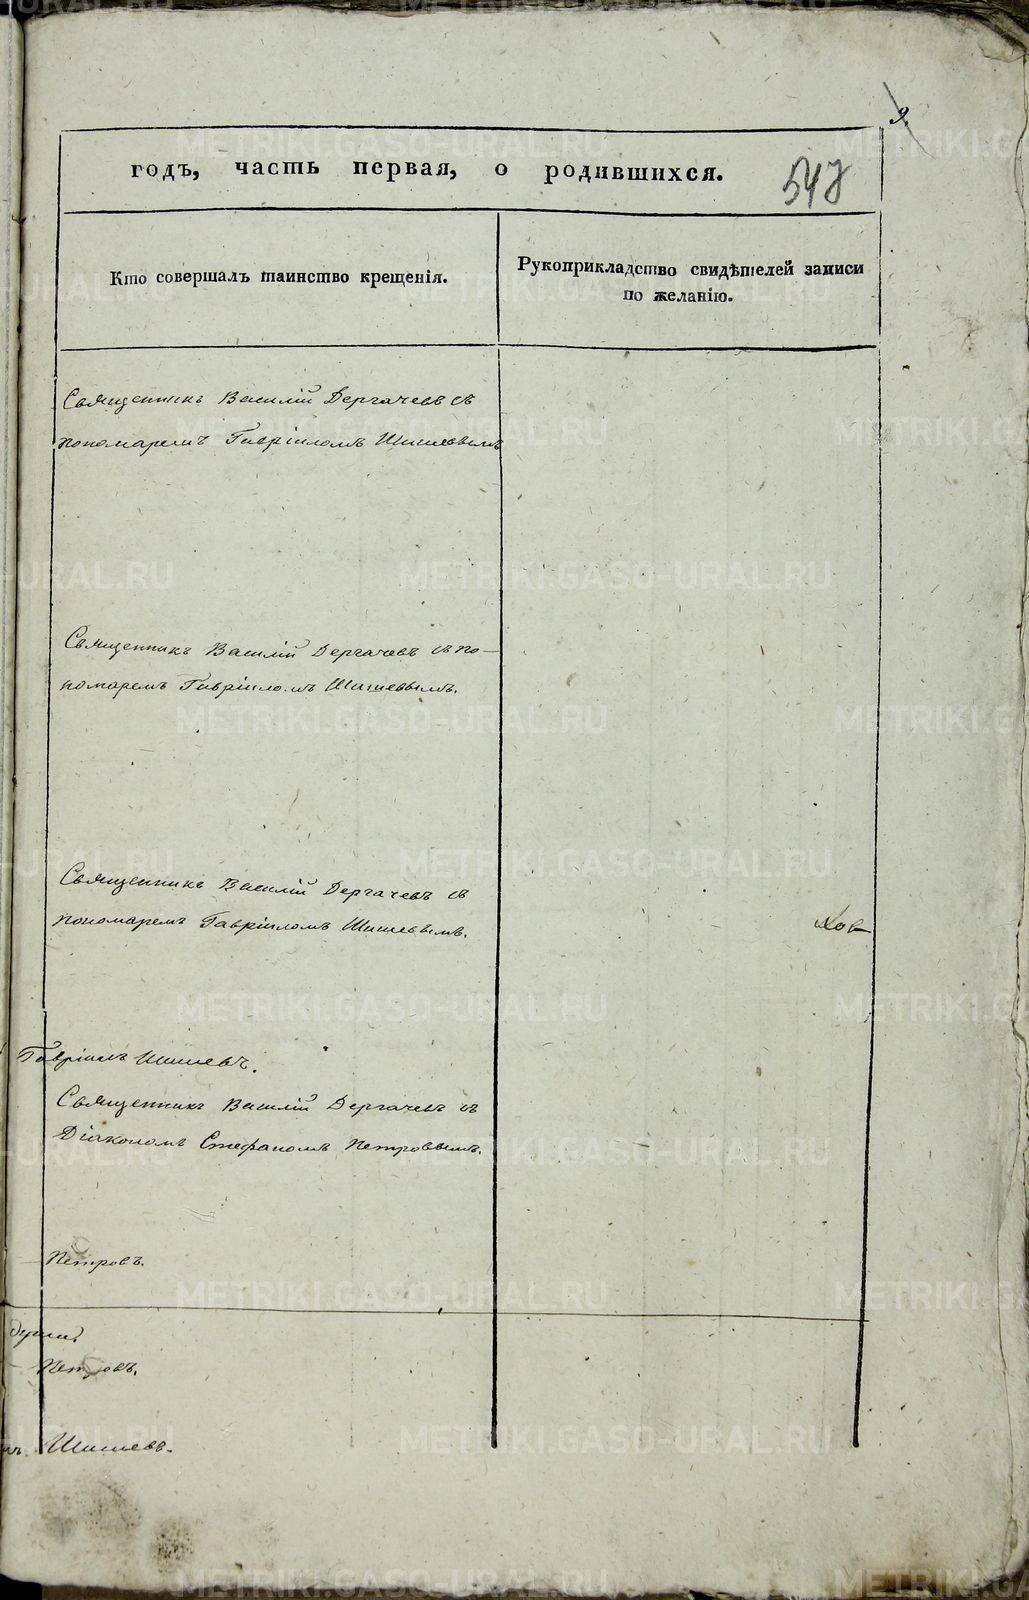 9.
годъ, часть первая, о родившихся.
547
Кто совершалъ таинство крещенія.
Рукоприкладство свидѣтелей записи
по желанію.
Священникъ Василій Дергачевъ съ
пономаремъ Гавріиломъ Шишевымъ
Священникъ Василій Дергачевъ съ по-
номаремъ Гавріиломъ Шишевымъ.
Священникъ Василій Дергачевъ съ
пономаремъ Гавріиломъ Шишевымъ.
Гавріилъ Шишевъ.
Священникъ Василій Дергачевъ съ
Діакономъ Стефаномъ Петровымъ.
Петровъ.
Петровъ.
Шишевъ.
METRIKI.GASO-URAL.RU